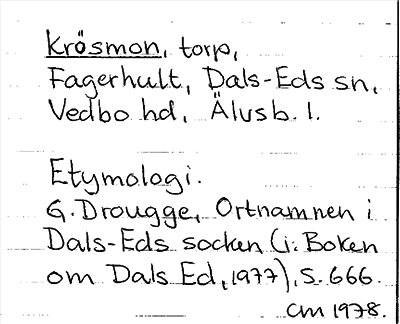 Krösmon, torp,
Fagerhult, Dals-Eds sn,
Vedbo hd, Älvsb. l.
Etymologi.
G. Drougge, Ortnamnen i
Dals-Eds socken (i: Boken
om Dals Ed, 1977), s. 666.
CM 1978.